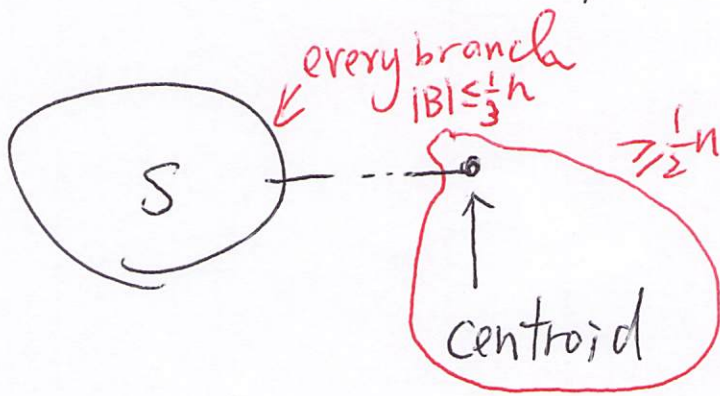 every branch
|B| ≤ 1/3 n
≥ 1/2 n
S
centroid